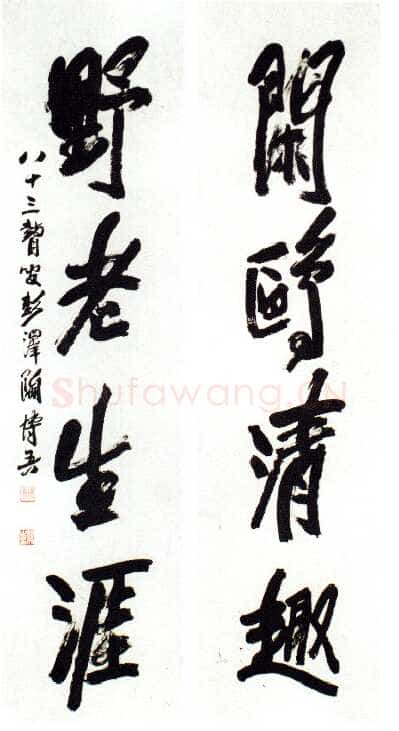 閑鷗清趣
野老生涯
八十三叟彭澤陶博吾
Shufawang.CN